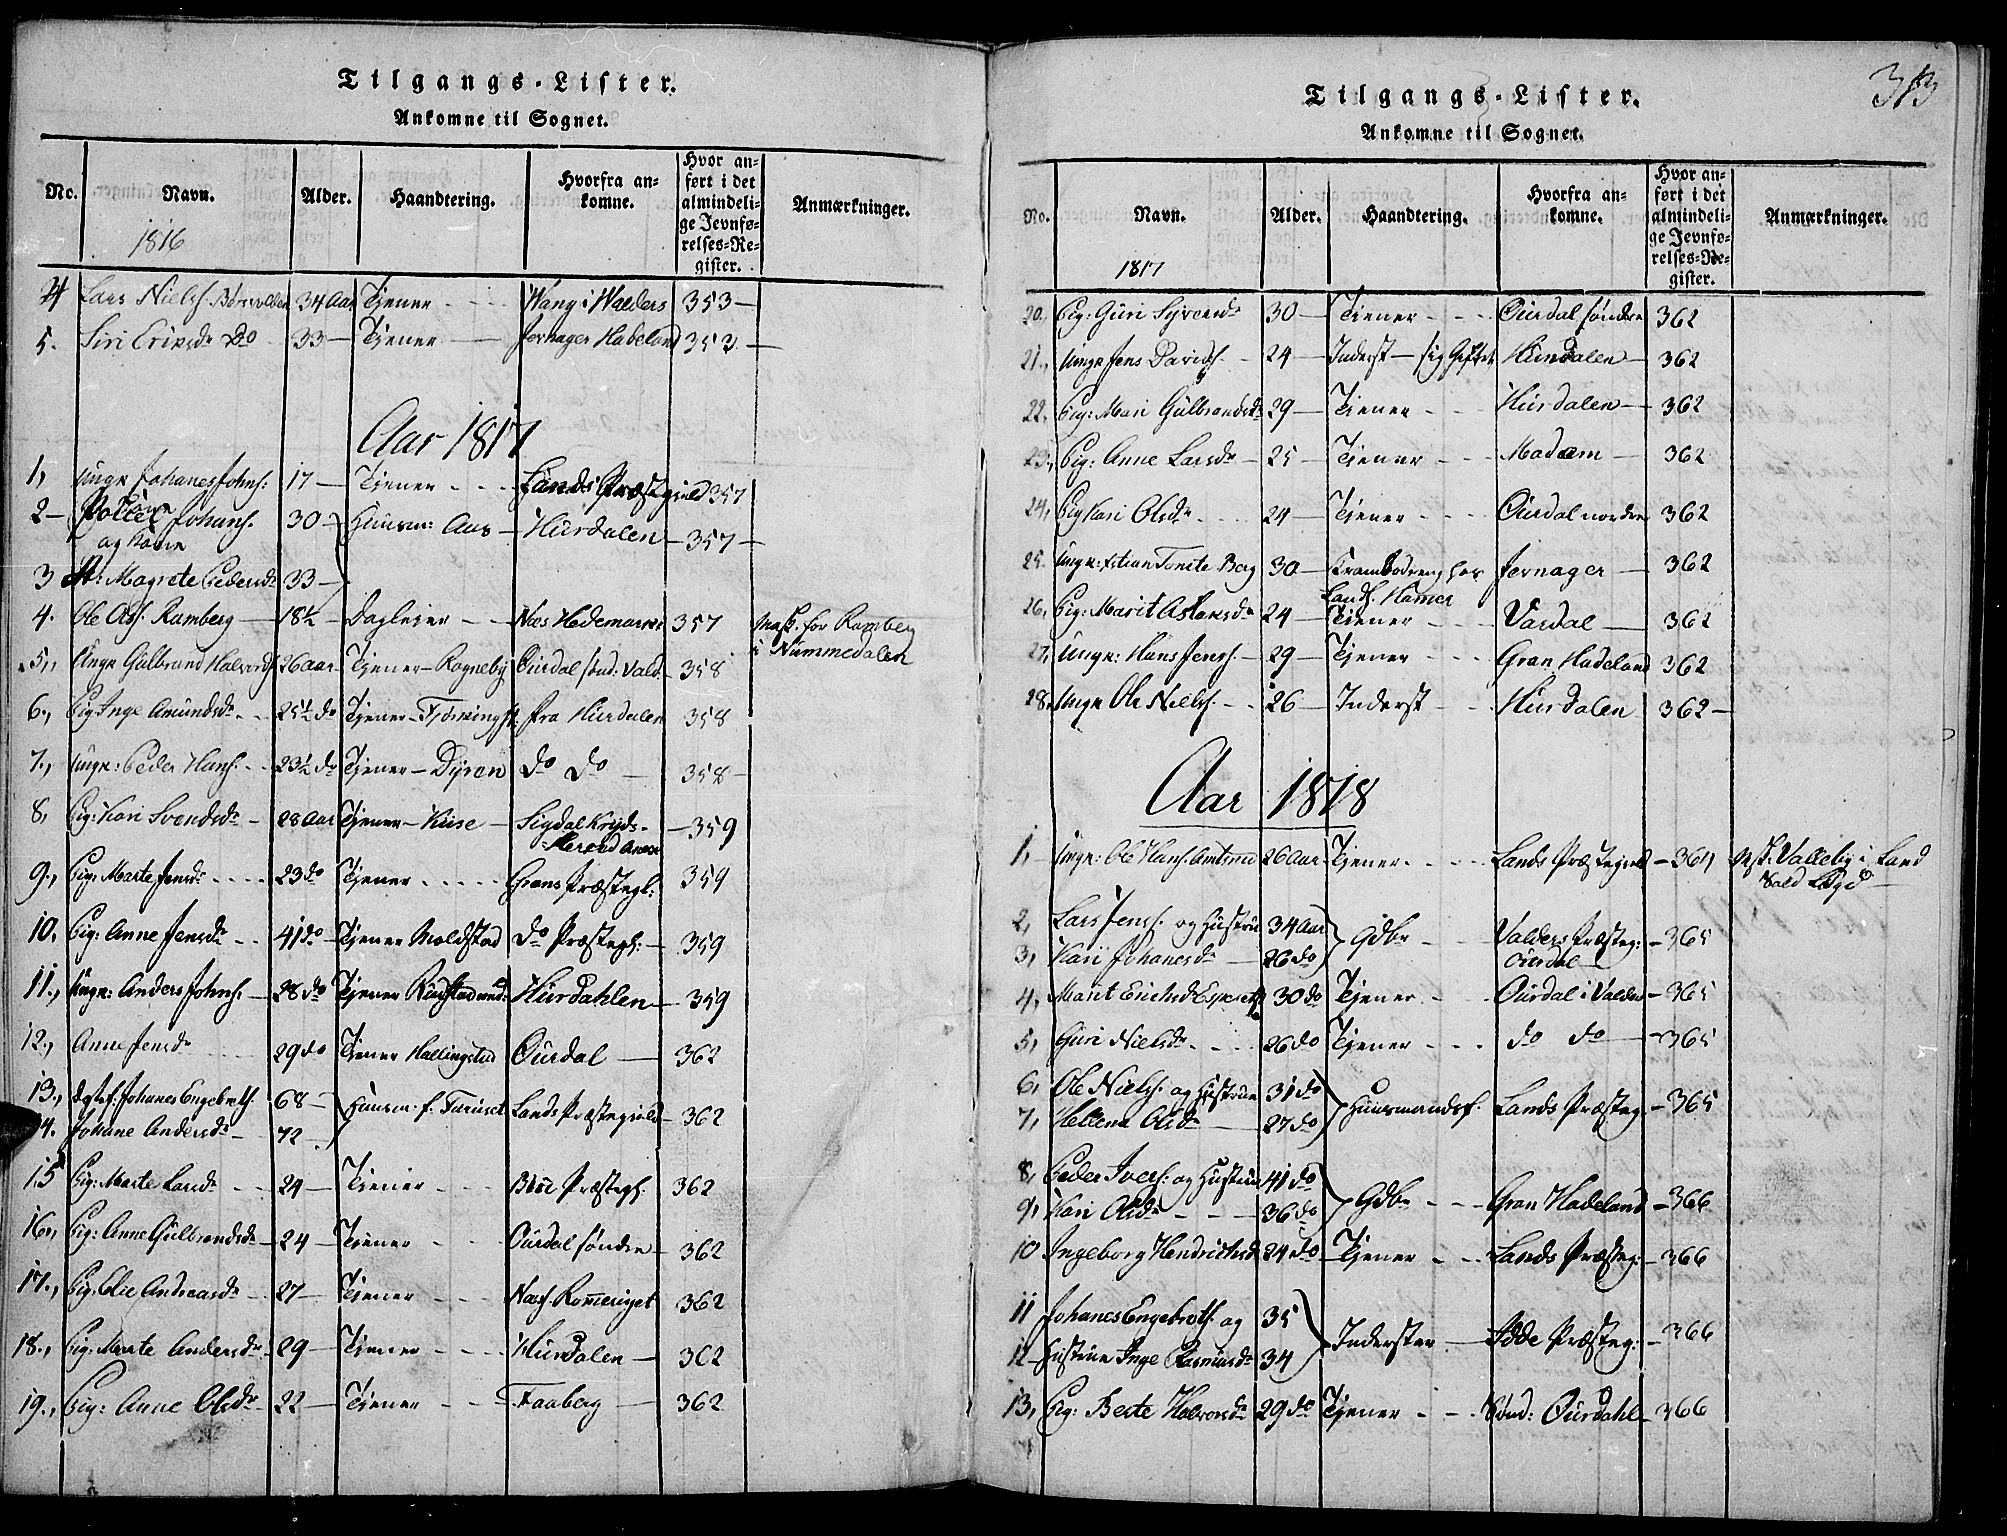 Tilgangs-Lister.
Ankomne til Sognet.
No. Navn. Alder. Haandtering. Hvorfra ankomne. Hvor anført i det almindelige Jevnførelses-Register. Anmærkninger.
1816
4 Lars Nielss. 34 Aar Tjener Wang i Walders 353
5. Siri Ericsdr Do 33 Tjener Jevnager Hadeland 353
Aar 1817
1, Ungk Johanes Johns. 17 Tjener Lands Præstegield 357
2 Johans. 30 Huusm: Aas Hurdalen 357
og kone
3 Magrete Pedersdr 33
4. Ole Ramberg 18½ Dagleier Næs Hedemarken 357 for Ramberg
i Nummedalen
5., Ungk Gulbrand Halvords. 26 aar Tjener Rogneby Ourdal sønd: Vald. 358
6., Pig Inge Amundsdr 25½ do Tjener fra Hurdalen 358
7., Ungk: Peder Hans. 23½ do Tjener Dyren do do 358
8, Pig: Kari Svendsdr 28 Aar Tjener Kiise Sigdal Kryds- 359
9., Pig: Marte Jensdr 23 do Tjener Grans Præstegl: 359
10, Pig: Anne Jensdr 41 do Tjener Moldstad do Præstegl: 359
11., Ungk: Anders Johns. 28 do Tjener Hurdahlen 359
12., Anne Jensdr 29 do Tjener Hallingstad Ourdal 362
13., Johanes Engebreths. 68 Huusm: f. Lands Præstegield 362
14. Johane Andersdr 72
15 Pig: Marte Larsdr 24 Tiener Præstegl. 362
16., Pig: Anne Gulbrandsdr 24 Tiener Ourdal søndre 362
17., Pig: Andreasdr 27 Tiener Næs Romeriget 362
18., Pig: Marte Andersdr 29 Tiener Hurdalen 362
19., Pig: Anne Olsdr 22 Tiener Faaberg 362
313
Tilgangs-Lister.
Ankomne til Sognet.
No. Navn. Alder. Haandtering. Hvorfra ankomne. Hvor anført i det almindelige Jevnførelses-Register. Anmærkninger.
1817
20., Pig: Guri Syversdr 30 Tiener Ourdal søndre 362
21., Ungk Jens Davids. 24 Inderst sig Giftet Hurdalen 362
22. Pig: Mari Gulbrandsdr 29 Tiener Hurdalen 362
23., Pig: Anne Larsdr 25 Tiener 362
24, Pig Kari Olsdr 24 Tiener Ourdal nordre 362
25. Ungk: Berg 30 Krambodreng hos Jevnager 362
Hamer
26, Pig: Marit Aslaksdr 24 Tiener Vardal 362
27, Ungk: Hans Jens. 29 Tiener Gran Hadeland 362
28, Ungk Ole Niels. 26 Inderst Hurdalen 362
Aar 1818
1, Ungk: Ole Hans. 26 Aar Tjener Lands Præstegield 364 i Land
2, Lars Jens. og Hustrue 34 Aar Gdbr Valders Præsteg: 365
Ourdal
3, Kari Johanesdr 26 do
4, Marit 30 do Tjener Ourdal i Valders 365
5, Guri Nielsdr 26 do Tjener do do 365
6, Ole Niels. og Hustrue 31 do Huusmandsf. Lands Præsteg. 365
7, Hellena Olsdr 27 do
8, Peder Ivers. og Hustrue 41 do Gdbr Gran Hadeland 366
9, Kari Olsdr 36 do
10 Ingeborg Hendrichsdr 24 do Tjener Lands Præsteg: 366
11 Johanes Engebreths. og 35 Inderster Præsteg: 366
12 Hustrue Inge Rasmusdr 34
13, Pig: Berte Halvorsdr 29 do Tjener Sønd: Ourdahl 366